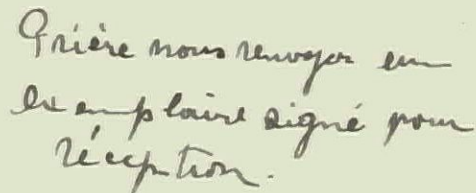 Prière nous renvoyer un
exemplaire signé pour
réception.